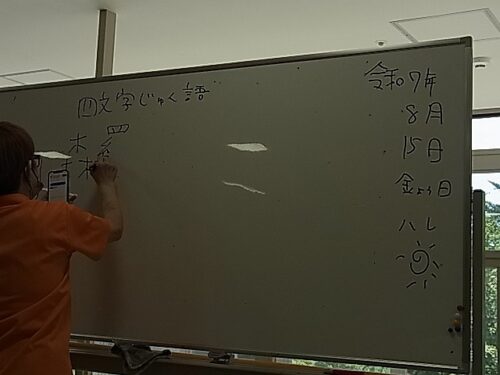 四文字じゅく語
令和7年
8月
15日
金よう日
ハレ
四
木